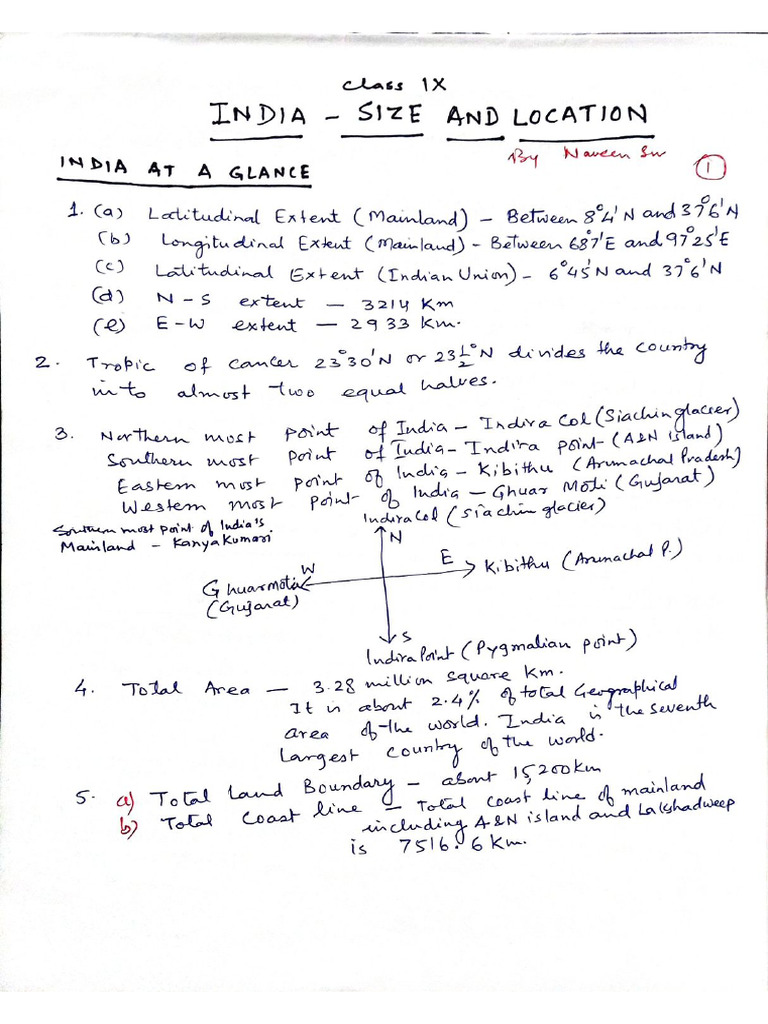 Class IX
INDIA - SIZE AND LOCATION
By Naveen Sir
1
INDIA AT A GLANCE
1. (a) Latitudinal Extent (Mainland) - Between 8°4'N and 37°6'N
(b) Longitudinal Extent (Mainland) - Between 68°7'E and 97°25'E
(c) Latitudinal Extent (Indian Union) - 6°45'N and 37°6'N
(d) N-S extent — 3214 Km
(e) E-W extent — 2933 Km.
2. Tropic of cancer 23°30'N or 23½°N divides the country
in to almost two equal halves.
3. Northern most point of India - Indira Col (Siachin glacier)
Southern most point of India - Indira point (A&N island)
Eastern most point of India - Kibithu (Arunachal Pradesh)
Western most point of India - Ghuar Moti (Gujarat)
Southern most point of India's
Mainland - Kanyakumari
Indira Col (Siachin glacier)
N
W
E
Ghuarmotia
(Gujarat)
Kibithu (Arunachal P.)
S
Indira Point (Pygmalian point)
4. Total Area — 3.28 million square Km.
It is about 2.4% of total Geographical
area of the world. India is the seventh
largest country of the world.
5. a) Total Land Boundary - about 15,200 km
b) Total Coast line - Total coast line of mainland
including A&N island and Lakshadweep
is 7516.6 Km.